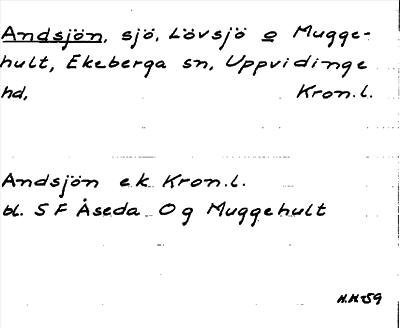 Andsjön, sjö, Lövsjö o Mugge-
hult, Ekeberga sn, Uppvidinge
hd, Kron.l.
Andsjön ek Kron.l.
bl. 5 F Åseda Og Muggehult
H.H-59